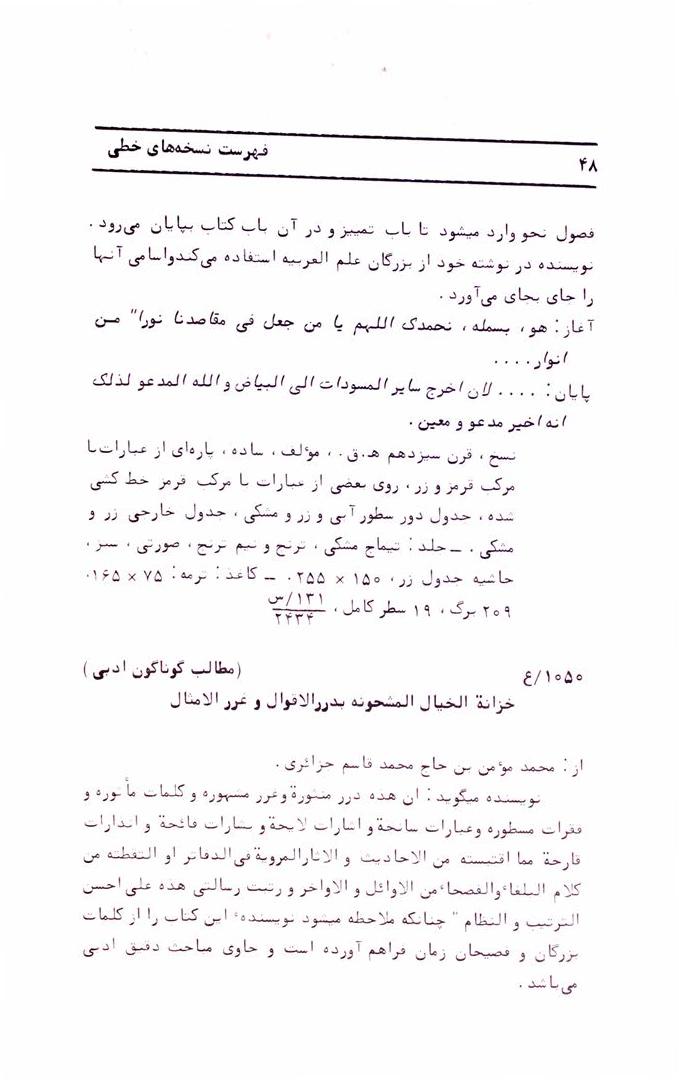 ۴۸
فهرست نسخه‌های خطی
فصول نحو وارد میشود تا باب تمییز و در آن باب کتاب بپایان می‌رود .
نویسنده در نوشته خود از بزرگان علم العربیه استفاده می‌کندواسامی آنها
را جای بجای می‌آورد .
آغاز : هو ، بسمله ، نحمدک اللهم یا من جعل فی مقاصدنا نورا" من
انوار . . . .
پایان : . . . . لان اخرج سایر المسودات الی البیاض و الله المدعو لذلک
انه اخیر مدعو و معین .
نسخ ، قرن سیزدهم ه‍ .ق . ، مؤلف ، ساده ، پاره‌ای از عبارات با
مرکب قرمز و زر ، روی بعضی از عبارات با مرکب قرمز خط کشی
شده ، جدول دور سطور آبی و زر و مشکی ، جدول خارجی زر و
مشکی . ــ جلد : تیماج مشکی ، ترنج و نیم ترنج ، صورتی ، سبز ،
حاشیه جدول زر ، ۱۵۰ × ۲۵۵ . ــ کاغذ : ترمه : ۷۵ × ۱۶۵ .
۲۰۹ برگ ، ۱۹ سطر کامل ، ۱۳۱/س
۲۴۳۴
۱۰۵۰/ع
(مطالب گوناگون ادبی )
خزانة الخیال المشحونه بدررالاقوال و غرر الامثال
از : محمد مؤمن بن حاج محمد قاسم جزائری .
نویسنده میگوید : ان هذه درر منثورة وغرر مشهوره و کلمات مأثوره و
فقرات مسطوره وعبارات سانحة و اشارات لایحة و بشارات فائحة و انذارات
قارحة مما اقتبسته من الاحادیث و الاثارالمرویة فی‌الدفاتر او التقطته من
کلام البلغاءوالفصحاءمن الاوائل و الاواخر و رتبت رسالتی هذه علی احسن
الترتیب و النظام " چنانکه ملاحظه میشود نویسندهٔ این کتاب را از کلمات
بزرگان و فصیحان زمان فراهم آورده است و حاوی مباحث دقیق ادبی
می‌باشد .